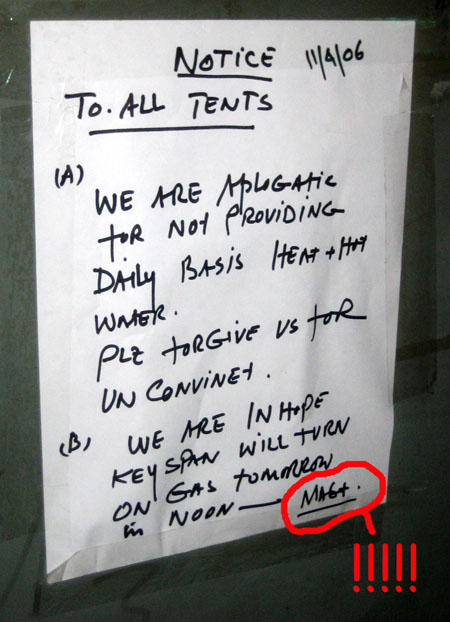 NOTICE 11/4/06
TO. ALL TENTS
(A)
WE ARE APLOGATIC
FOR NOT PROVIDING
DAILY BASIS HEAT + HOT
WATER.
PLZ FORGIVE US FOR
UN CONVINET.
(B) WE ARE IN HOPE
KEYSPAN WILL TURN
ON GAS TOMORROW
in NOON — MAGT.
!!!!!